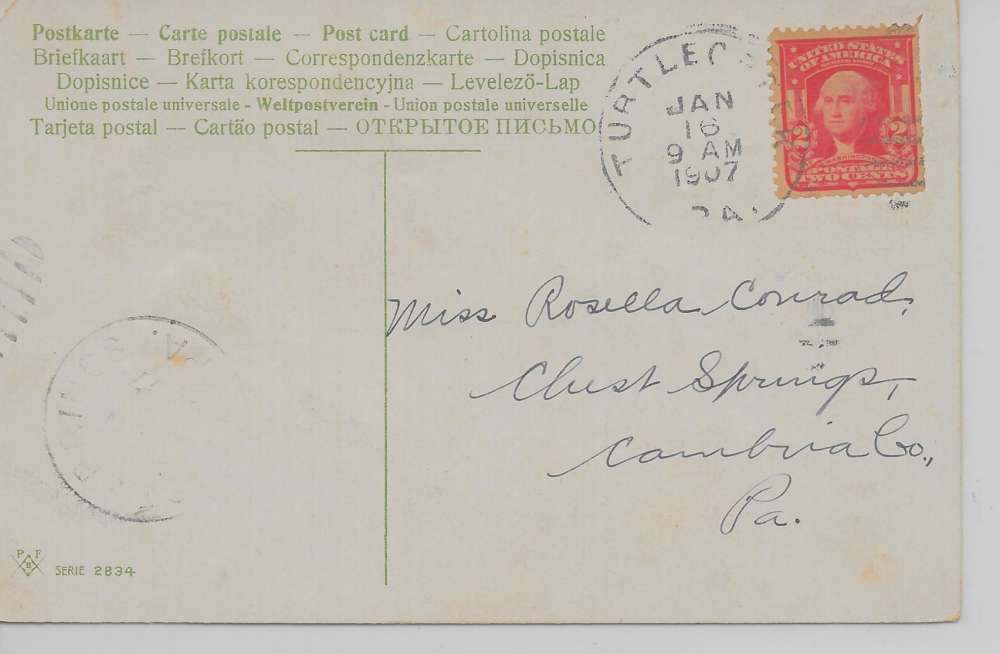 Postkarte — Carte postale — Post card — Cartolina postale
Briefkaart — Brefkort — Correspondenzkarte — Dopisnica
Dopisnice — Karta korespondencyjna — Levelező-Lap
Unione postale universale - Weltpostverein - Union postale universelle
Tarjeta postal — Cartão postal — ОТКРЫТОЕ ПИСЬМО
TURTLE
JAN
16
9 AM
1907
PA.
UNITED STATES
OF AMERICA
2 2
POSTAGE
TWO CENTS
Miss Rosella Conrad,
Chest Springs,
Cambria Co.,
Pa.
P F
B
SERIE 2834